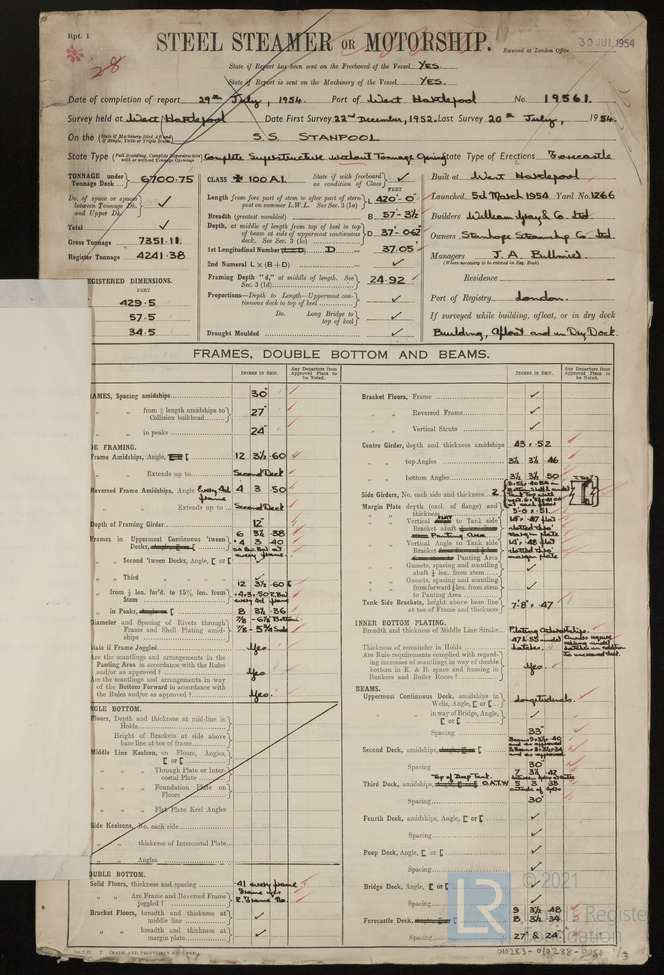 Rpt. 1
28
STEEL STEAMER OR MOTORSHIP.
Received at London Office
30 JUL 1954
State if Report has been sent on the Freeboard of the Vessel YES.
State if Report is sent on the Machinery of the Vessel YES.
Date of completion of report 29th July, 1954. Port of West Hartlepool No. 19561.
Survey held at West Hartlepool Date First Survey 22nd December, 1952. Last Survey 20th July, 1954.
On the S.S. STANPOOL
State Type Complete Superstructure without Tonnage Opening State Type of Erections Forecastle
TONNAGE under Tonnage Deck 6700.75
Do. of space or spaces between Tonnage Dk. and Upper Dk. ✓
Total ✓
Gross Tonnage 7351.11
Register Tonnage 4241.38
REGISTERED DIMENSIONS.
FEET
429.5
57.5
34.5
CLASS 100 A1. State if with freeboard as condition of Class ✓
FEET
Length from fore part of stem to after part of stern post on summer L.W.L. See Sec. 3 (1a) L 420'-0"
Breadth (greatest moulded) B 57-3½
Depth, at middle of length from top of keel to top of beam at side of uppermost continuous deck. See Sec. 3 (1c) D 37-06
1st Longitudinal Number D 37.05
2nd Numeral L × (B + D) ✓
Framing Depth "d," at middle of length. See Sec. 3 (1d) 24.92
Proportions—Depth to Length—Uppermost continuous deck to top of keel ✓
Do. Long Bridge to top of keel ✓
Draught Moulded ✓
Built at West Hartlepool
Launched 5th March 1954 Yard No. 1266
Builders William Gray & Co. Ltd.
Owners Stanhope Steamship Co. Ltd.
Managers J. A. Billmeir
(Where necessary to be entered in Reg. Book)
Residence
Port of Registry London.
If surveyed while building, afloat, or in dry dock
Building, Afloat and in Dry Dock.
FRAMES, DOUBLE BOTTOM AND BEAMS.
INCHES IN SHIP. Any Departure from Approved Plans to be Noted.
INCHES IN SHIP. Any Departure from Approved Plans to be Noted.
FRAMES, Spacing amidships 30"
" " from ⅕ length amidships to Collision bulkhead 27"
" " in peaks 24"
SIDE FRAMING.
Frame Amidships, Angle, [ 12 3½ .60
" " Extends up to Second Deck
Reversed Frame Amidships, Angle Every 4th frame 4 3 .50
" " Extends up to Second Deck
Depth of Framing Girder 12"
Frames in Uppermost Continuous 'tween Decks, 6 3½ .38
" Second 'tween Decks, Angle, [ or [ ✓
" Third " " ✓
" from ⅕ len. for'd. to 15% len. from Stem 12 3½ .60 [
" in Peaks, 8 3½ .36
Diameter and Spacing of Rivets through Frame and Shell Plating amidships 7/8 - 6⅛ Bottom
7/8 - 5¼ Side
State if Frame Joggled Yes
Are the scantlings and arrangements in the Panting Area in accordance with the Rules and/or as approved? Yes
Are the scantlings and arrangements in way of the Bottom Forward in accordance with the Rules and/or as approved? Yes.
SINGLE BOTTOM.
Floors, Depth and thickness at mid-line in Holds
" Height of Brackets at side above base line at toe of frame
Middle Line Keelson, on Floors, Angles, [ or [
" " Through Plate or Intercostal Plate
" " Foundation Plate on Floors
" " Flat Plate Keel Angles
Side Keelsons, No. each side
" " thickness of Intercostal Plate
" " Angles
DOUBLE BOTTOM.
Solid Floors, thickness and spacing .41 every frame
" " Are Frame and Reversed Frame joggled? Frame Yes R. Frame No.
Bracket Floors, breadth and thickness at middle line ✓
" " breadth and thickness at margin plate ✓
Bracket Floors, Frame ✓
" " Reversed Frame ✓
" " Vertical Struts ✓
Centre Girder, depth and thickness amidships 43 .52
" " top Angles 3½ 3½ .46
" " bottom Angles 3½ 3½ .50
Side Girders, No. each side and thickness 2
Margin Plate depth (excl. of flange) and thickness 5-0 × .51
" " Vertical to Tank side Bracket abaft Panting Area
" " Vertical Angle to Tank side Bracket
" " Gussets, spacing and scantling abaft ¼ len. from stem ✓
" " Gussets, spacing and scantling forward ¼ len. from stem to Panting Area ✓
Tank Side Brackets, height above base line at toe of Frame and thickness 7'-8" × .47
INNER BOTTOM PLATING.
Breadth and thickness of Middle Line Strake
Thickness of remainder in Holds
Are Rule requirements complied with regarding increases of scantlings in way of double bottom in E. & B. space and framing in Bunkers and Boiler Room? Yes.
BEAMS.
Uppermost Continuous Deck, amidships in Wells, Angle, [ or [ Longitudinals.
" " in way of Bridge, Angle, [ or [ ✓
Spacing 33"
Second Deck, amidships,
Spacing 30"
Third Deck, amidships, Top of Deep Tank. O.A.T.W
Spacing 30"
Fourth Deck, amidships, Angle, [ or [ ✓
Spacing ✓
Poop Deck, Angle, [ or [ ✓
Spacing ✓
Bridge Deck, Angle, [ or [ ✓
Spacing ✓
Forecastle Deck, 9 3½ .48
8 3½ .34
Spacing 27" & 24"
LR © 2021
Lloyd's Register
Foundation
010283-010288-0051 1/3